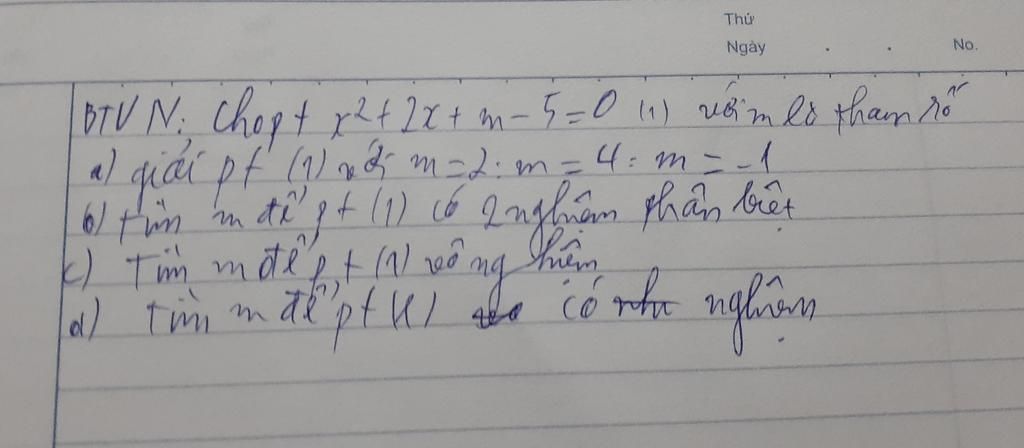 Thứ
Ngày . . No.
BTVN: Cho pt x²+2x+m-5=0 (1) với m là tham số
a) giải pt (1) với m=2; m=4; m=-1
b) tìm m để pt (1) có 2 nghiệm phân biệt
c) Tìm m để pt (1) vô nghiệm
d) Tìm m để pt (1) có nghiệm